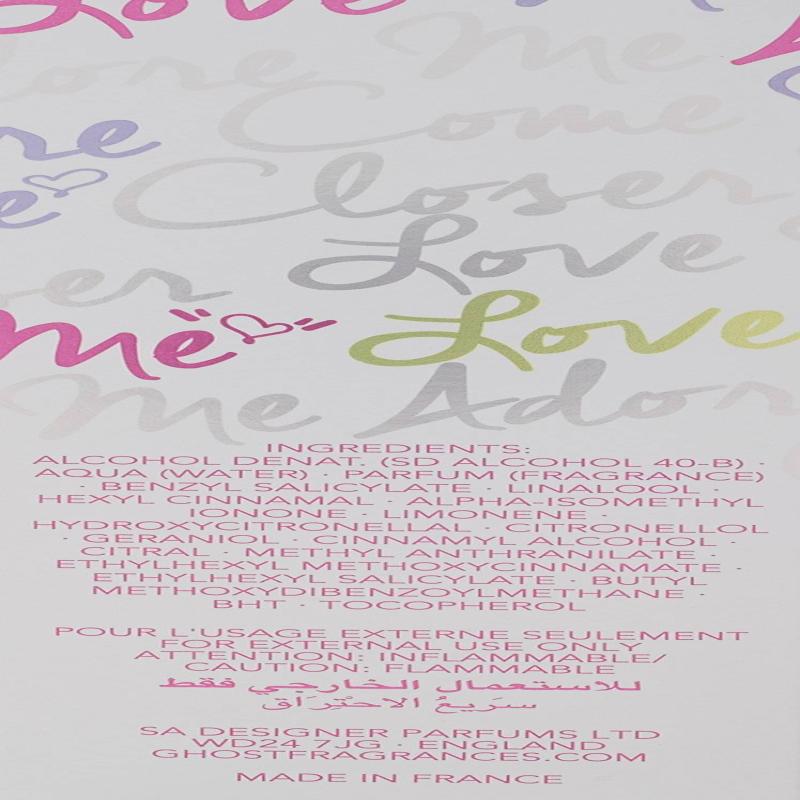 Love
ore Me
A
re Come
e Closer
ser Love
me Love
me Ador
INGREDIENTS:
ALCOHOL DENAT. (SD ALCOHOL 40-B) ·
AQUA (WATER) · PARFUM (FRAGRANCE)
· BENZYL SALICYLATE · LINALOOL ·
HEXYL CINNAMAL · ALPHA-ISOMETHYL
IONONE · LIMONENE ·
HYDROXYCITRONELLAL · CITRONELLOL
· GERANIOL · CINNAMYL ALCOHOL ·
CITRAL · METHYL ANTHRANILATE ·
ETHYLHEXYL METHOXYCINNAMATE ·
ETHYLHEXYL SALICYLATE · BUTYL
METHOXYDIBENZOYLMETHANE ·
BHT · TOCOPHEROL
POUR L'USAGE EXTERNE SEULEMENT
FOR EXTERNAL USE ONLY
ATTENTION: INFLAMMABLE/
CAUTION: FLAMMABLE
للاستعمال الخارجي فقط
سَريعُ الاحتِرَاق
SA DESIGNER PARFUMS LTD
WD24 7JG · ENGLAND
GHOSTFRAGRANCES.COM
MADE IN FRANCE